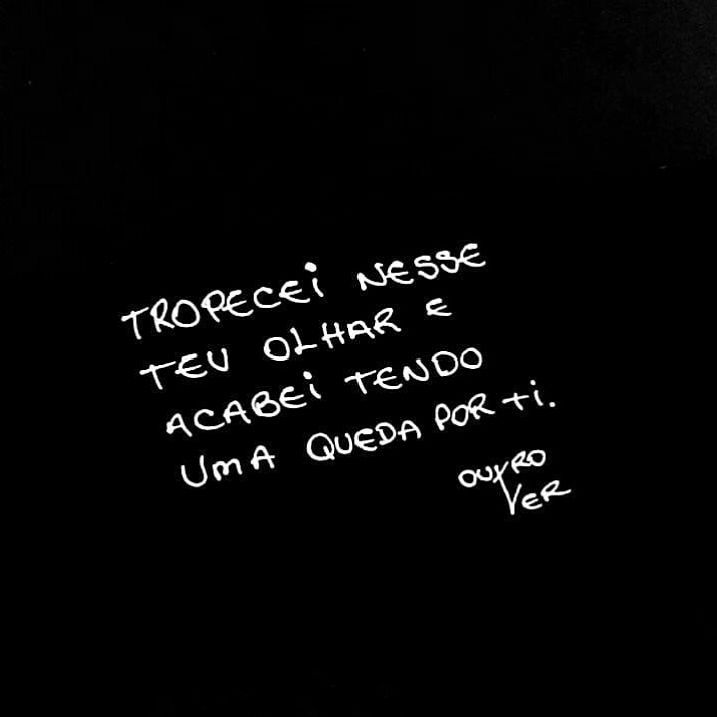 TROPECEi NESSE
TEU OLHAR E
ACABEi TENDO
UMA QUEDA POR ti.
OUTRO
VER